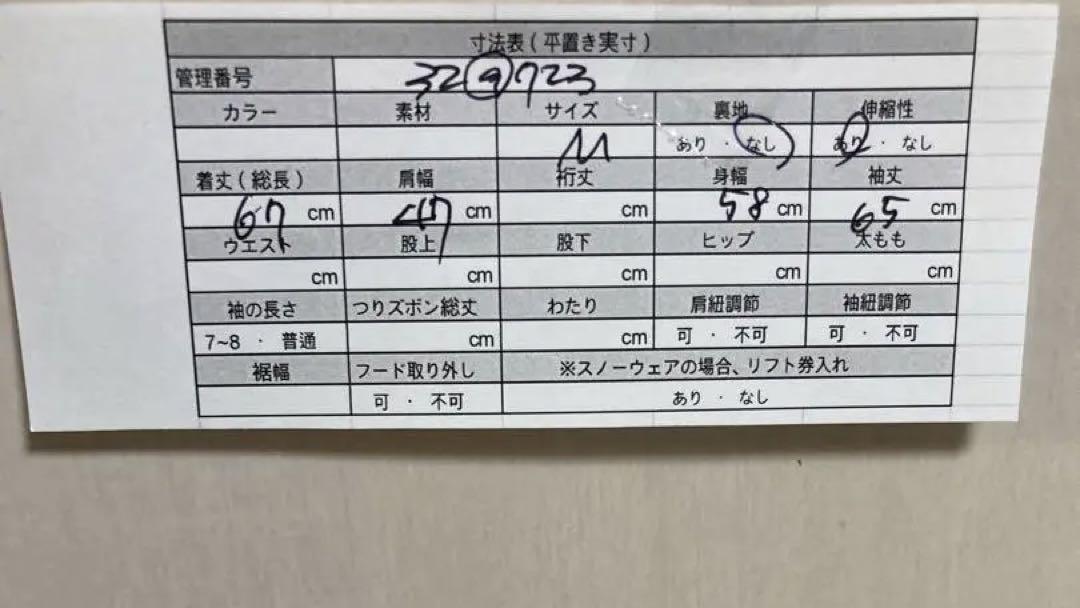 寸法表(平置き実寸)
管理番号 32ⓐ723
カラー 素材 サイズ 裏地 伸縮性
M あり・なし あり・なし
着丈(総長) 肩幅 裄丈 身幅 袖丈
67 cm 47 cm cm 58 cm 65 cm
ウエスト 股上 股下 ヒップ 太もも
cm cm cm cm cm
袖の長さ つりズボン総丈 わたり 肩紐調節 袖紐調節
7~8 ・ 普通 cm cm 可 ・ 不可 可 ・ 不可
裾幅 フード取り外し ※スノーウェアの場合、リフト券入れ
可 ・ 不可 あり ・ なし